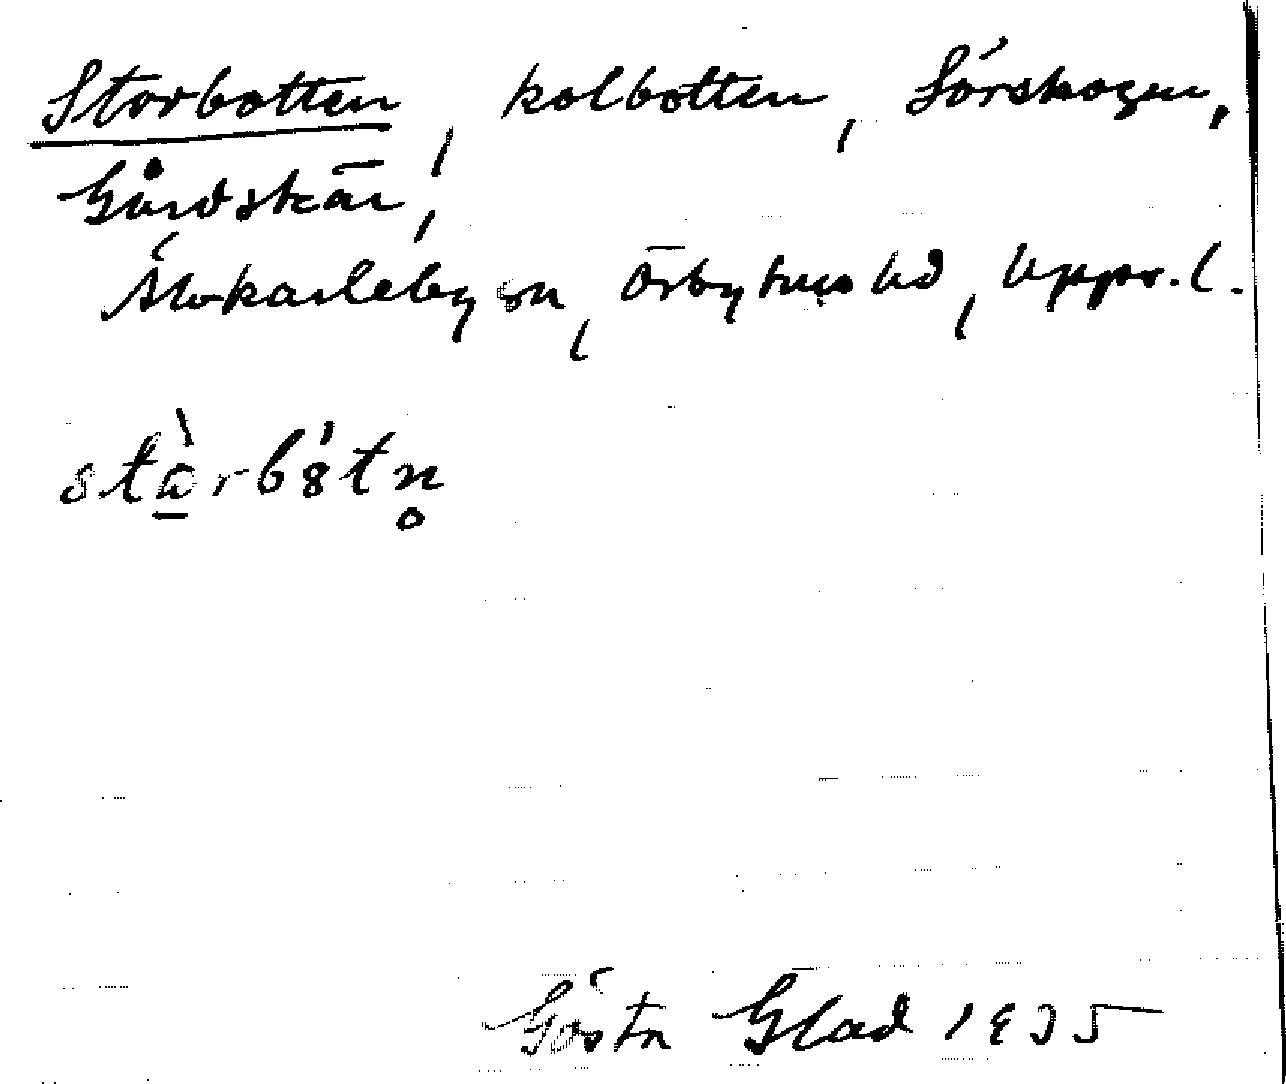 Storbotten, kolbotten, Sörskogen,
Gårdskär,
Älvkarleby sn, Örbyhus hd, Upps. l.
stàrbótn
Gösta Glad 1935